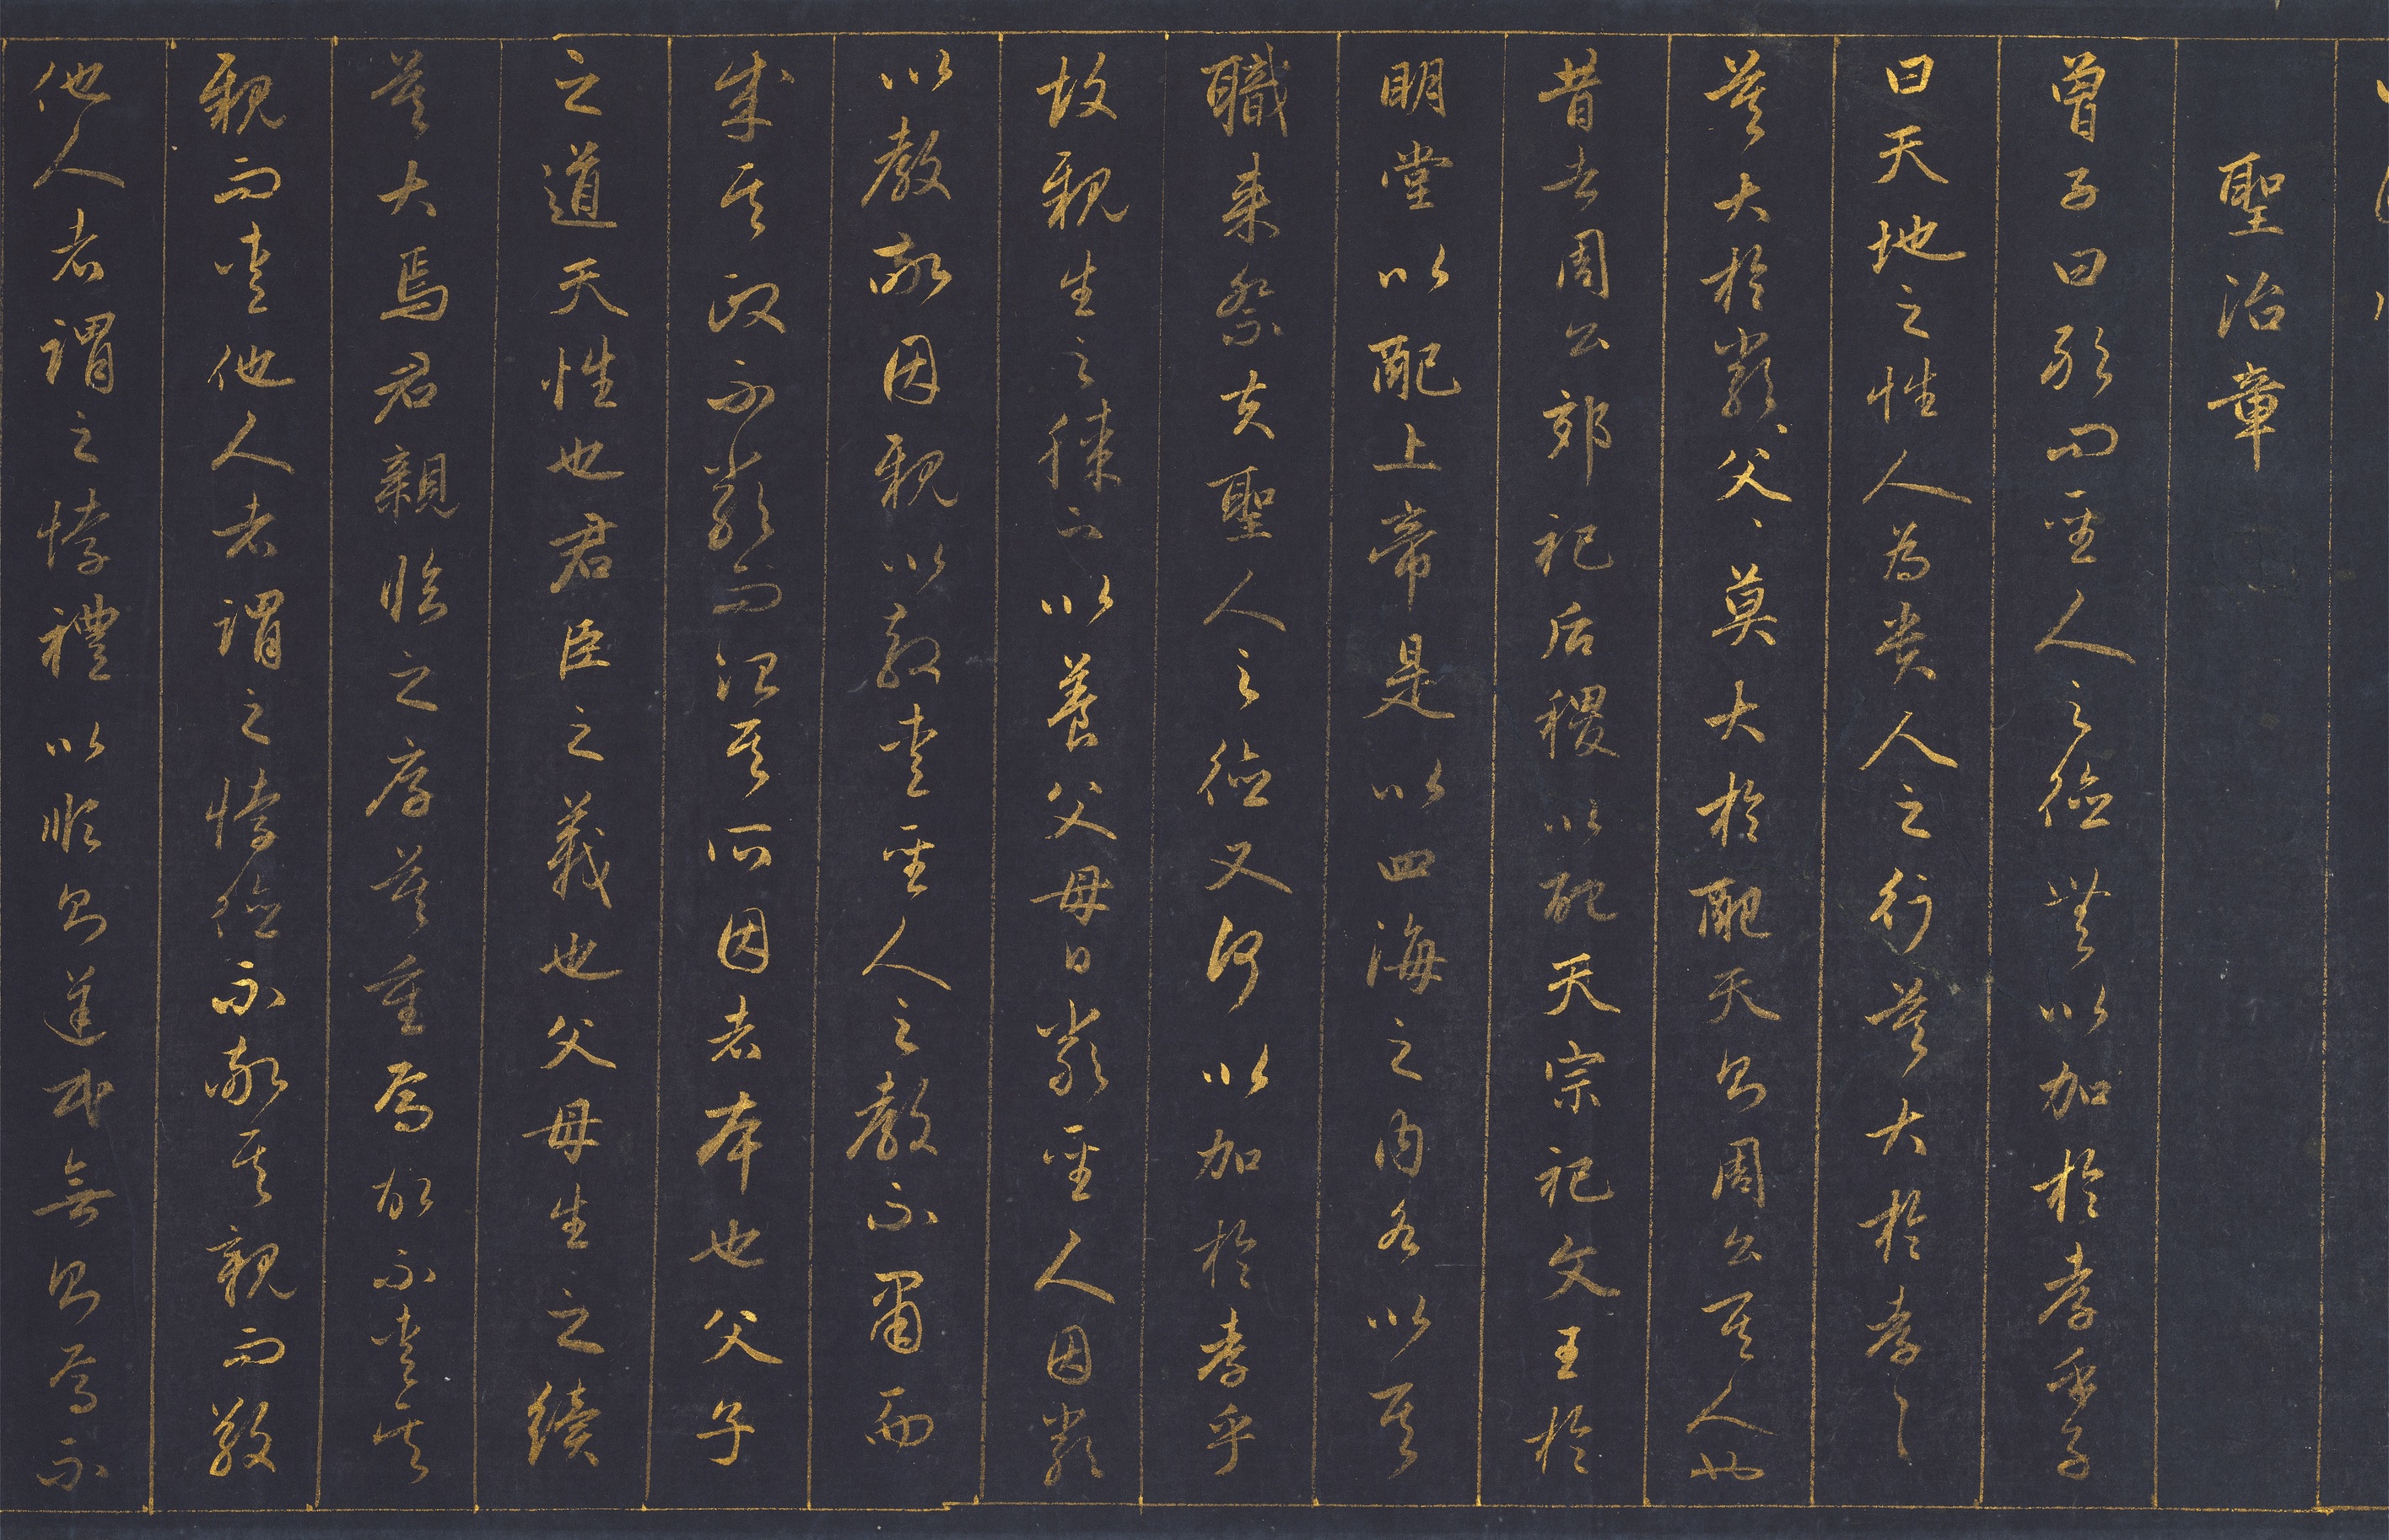 聖治章
曾子曰敢問聖人之德無以加於孝乎子
曰天地之性人為貴人之行莫大於孝〻
莫大於嚴〻父〻莫大於配天則周公其人也
昔者周公郊祀后稷以配天宗祀文王於
明堂以配上帝是以四海之内各以其
職来祭夫聖人之德又何以加於孝乎
故親生之膝下以養父母日嚴聖人因嚴
以教敬因親以教愛聖人之教不肅而
成其政不嚴而治其所因者本也父子
之道天性也君臣之義也父母生之續
莫大焉君親臨之厚莫重焉故不愛其
親而愛他人者謂之悖德不敬其親而敬
他人者謂之悖禮以順則逆民無則焉不